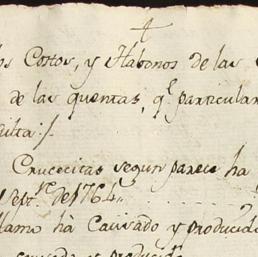 Costos, y Habonos de las
de las quentas, q.e particular
Crucecitas segun parece ha
Sept.re de 1764,,
llama hà Causado y producido